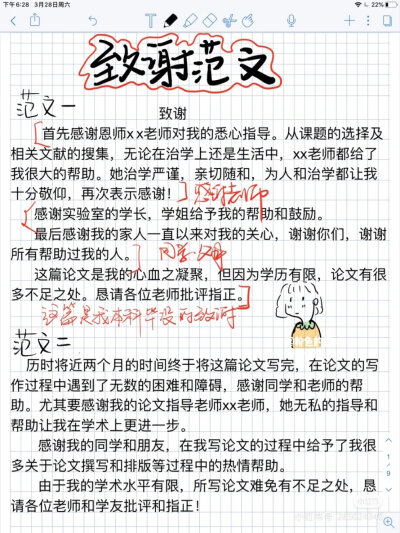 下午6:28 3月28日周六
22%
致谢范文
范文一
致谢
首先感谢恩师xx老师对我的悉心指导。从课题的选择及
相关文献的搜集，无论在治学上还是生活中，xx老师都给了
我很大的帮助。她治学严谨，亲切随和，为人和治学都让我
十分敬仰，再次表示感谢！
感谢老师
感谢实验室的学长，学姐给予我的帮助和鼓励。
最后感谢我的家人一直以来对我的关心，谢谢你们，谢谢
所有帮助过我的人。
同学父母
这篇论文是我的心血之凝聚，但因为学历有限，论文有很
多不足之处。恳请各位老师批评指正。
这篇是我本科毕设的致谢
范文二
历时将近两个月的时间终于将这篇论文写完，在论文的写
作过程中遇到了无数的困难和障碍，感谢同学和老师的帮
助。尤其要感谢我的论文指导老师xx老师，她无私的指导和
帮助让我在学术上更进一步。
感谢我的同学和朋友，在我写论文的过程中给予了我很
多关于论文撰写和排版等过程中的热情帮助。
由于我的学术水平有限，所写论文难免有不足之处，恳
请各位老师和学友批评和指正！
1
9